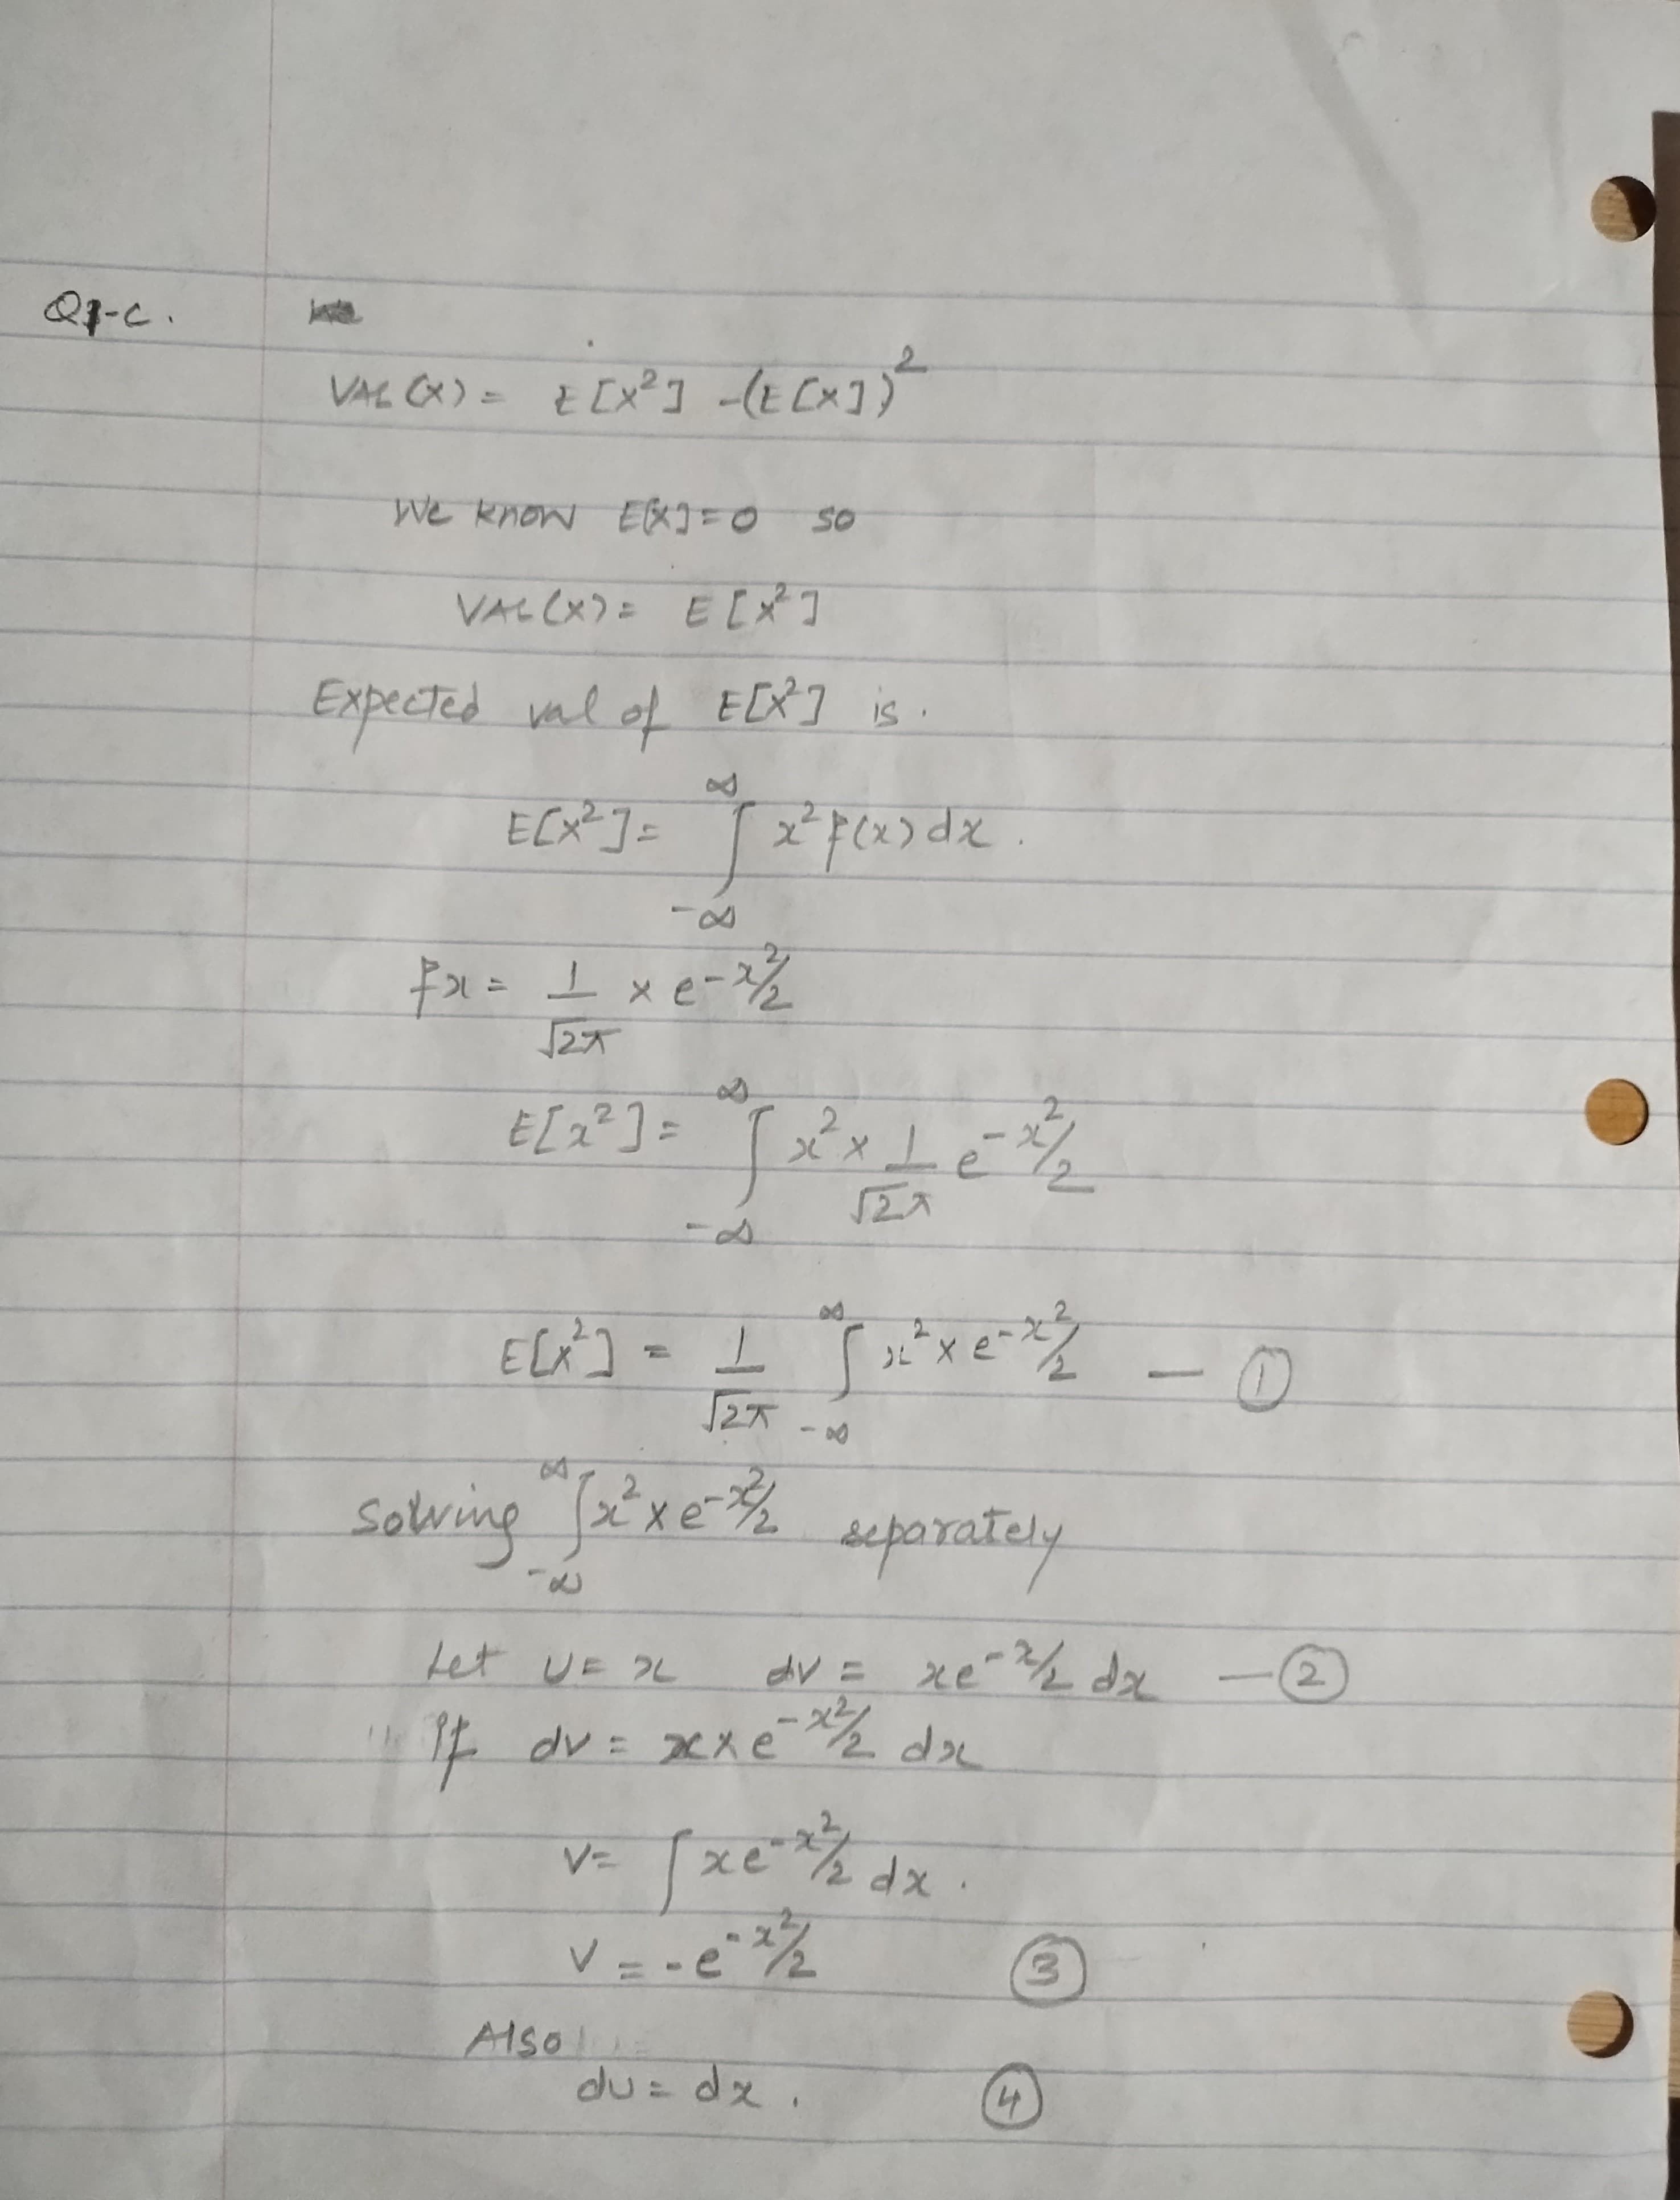 Q1-C.
Var(X) = E[X²] - (E[X])²
We know E[X] = 0 so
Var(X) = E[X²]
Expected val of E[X²] is.
E[X²] = ∫_{-∞}^{∞} x² f(x) dx.
fx = 1/√2π × e^{-x²/2}
E[x²] = ∫_{-∞}^{∞} x² × 1/√2π e^{-x²/2}
E[X²] = 1/√2π ∫_{-∞}^{∞} x² × e^{-x²/2} — ①
Solving ∫_{-∞}^{∞} x² × e^{-x²/2} separately
Let u = x dv = xe^{-x/2} dx — ②
If dv = x × e^{-x²/2} dx
v = ∫ xe^{-x²/2} dx.
v = -e^{-x²/2} ③
Also
du = dx. ④